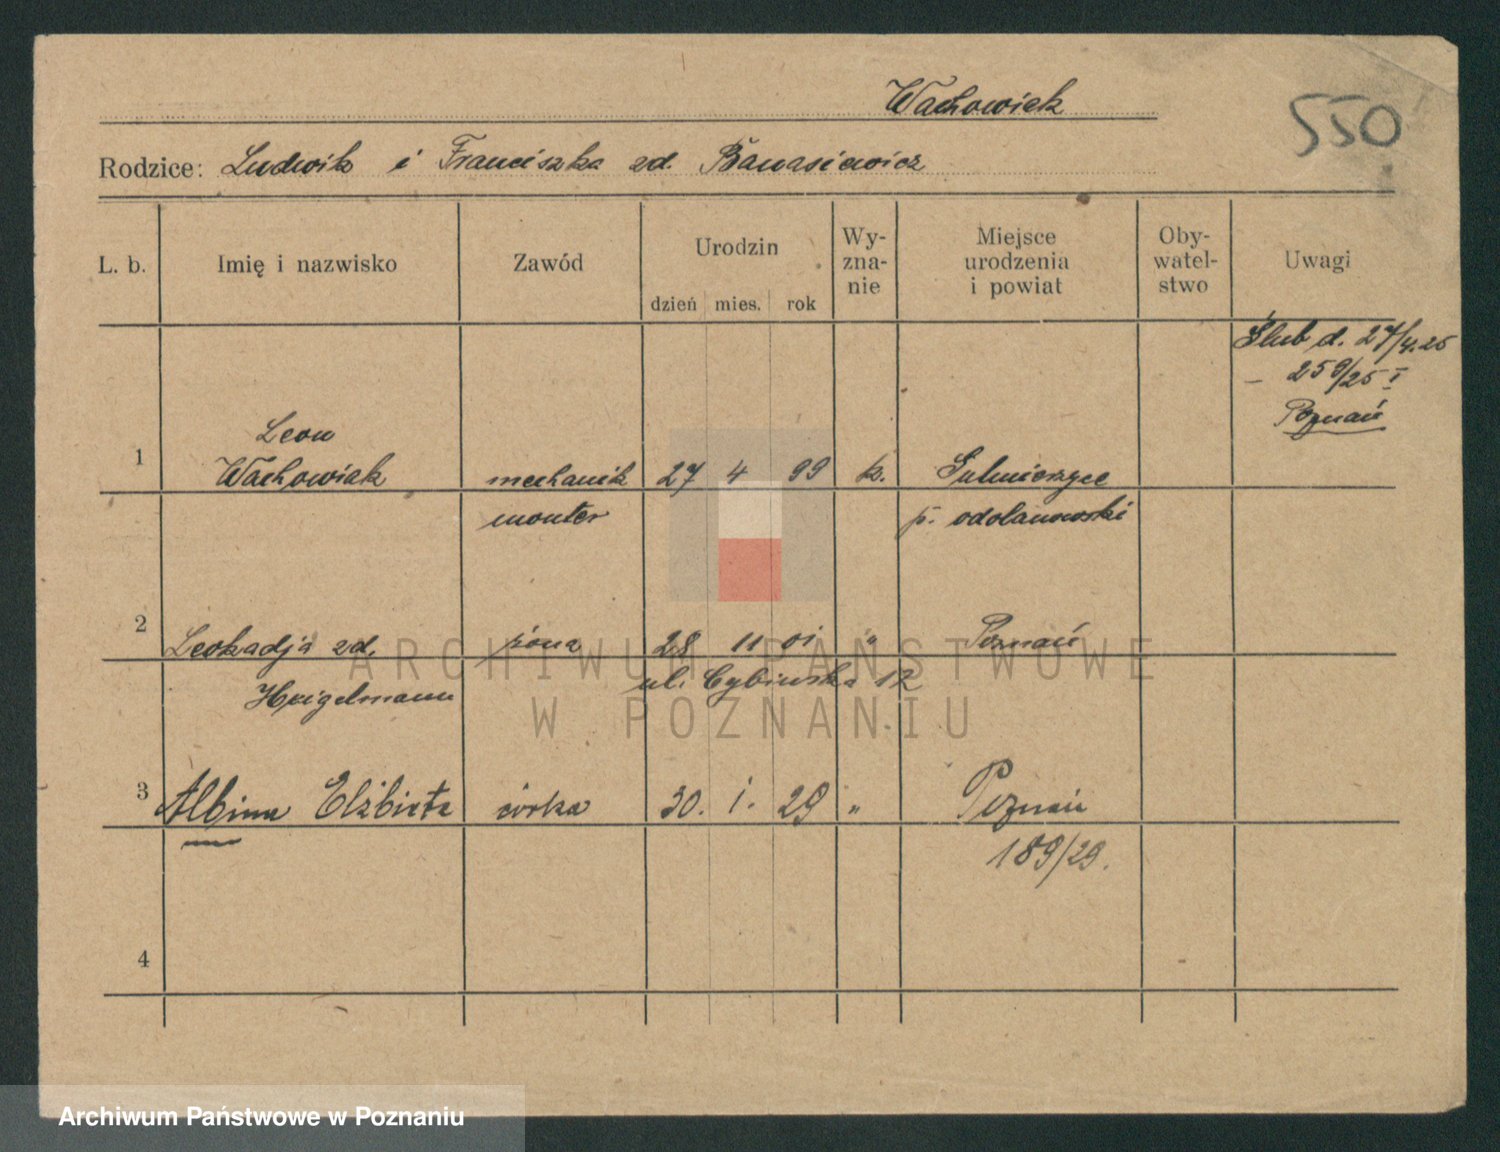 Wachowiak
550
Rodzice: Ludwik i Franciszka zd. Banasiewicz
L. b. Imię i nazwisko Zawód Urodzin Wy-zna-nie Miejsce urodzenia i powiat Oby-watel-stwo Uwagi
dzień mies. rok
Ślub d. 27/4.25
– 259/25 I
Poznań
Leon
1 Wachowiak mechanik 27 4 99 k. Sulmierzyce
monter p. odolanowski
2 Leokadja zd. żona 28 11 01 " Poznań
Heigelmann ul. Cybińska 12
3 Albina Elżbieta córka 30. 1. 29 " Poznań
189/29.
4
ARCHIWUM PAŃSTWOWE
W POZNANIU
Archiwum Państwowe w Poznaniu